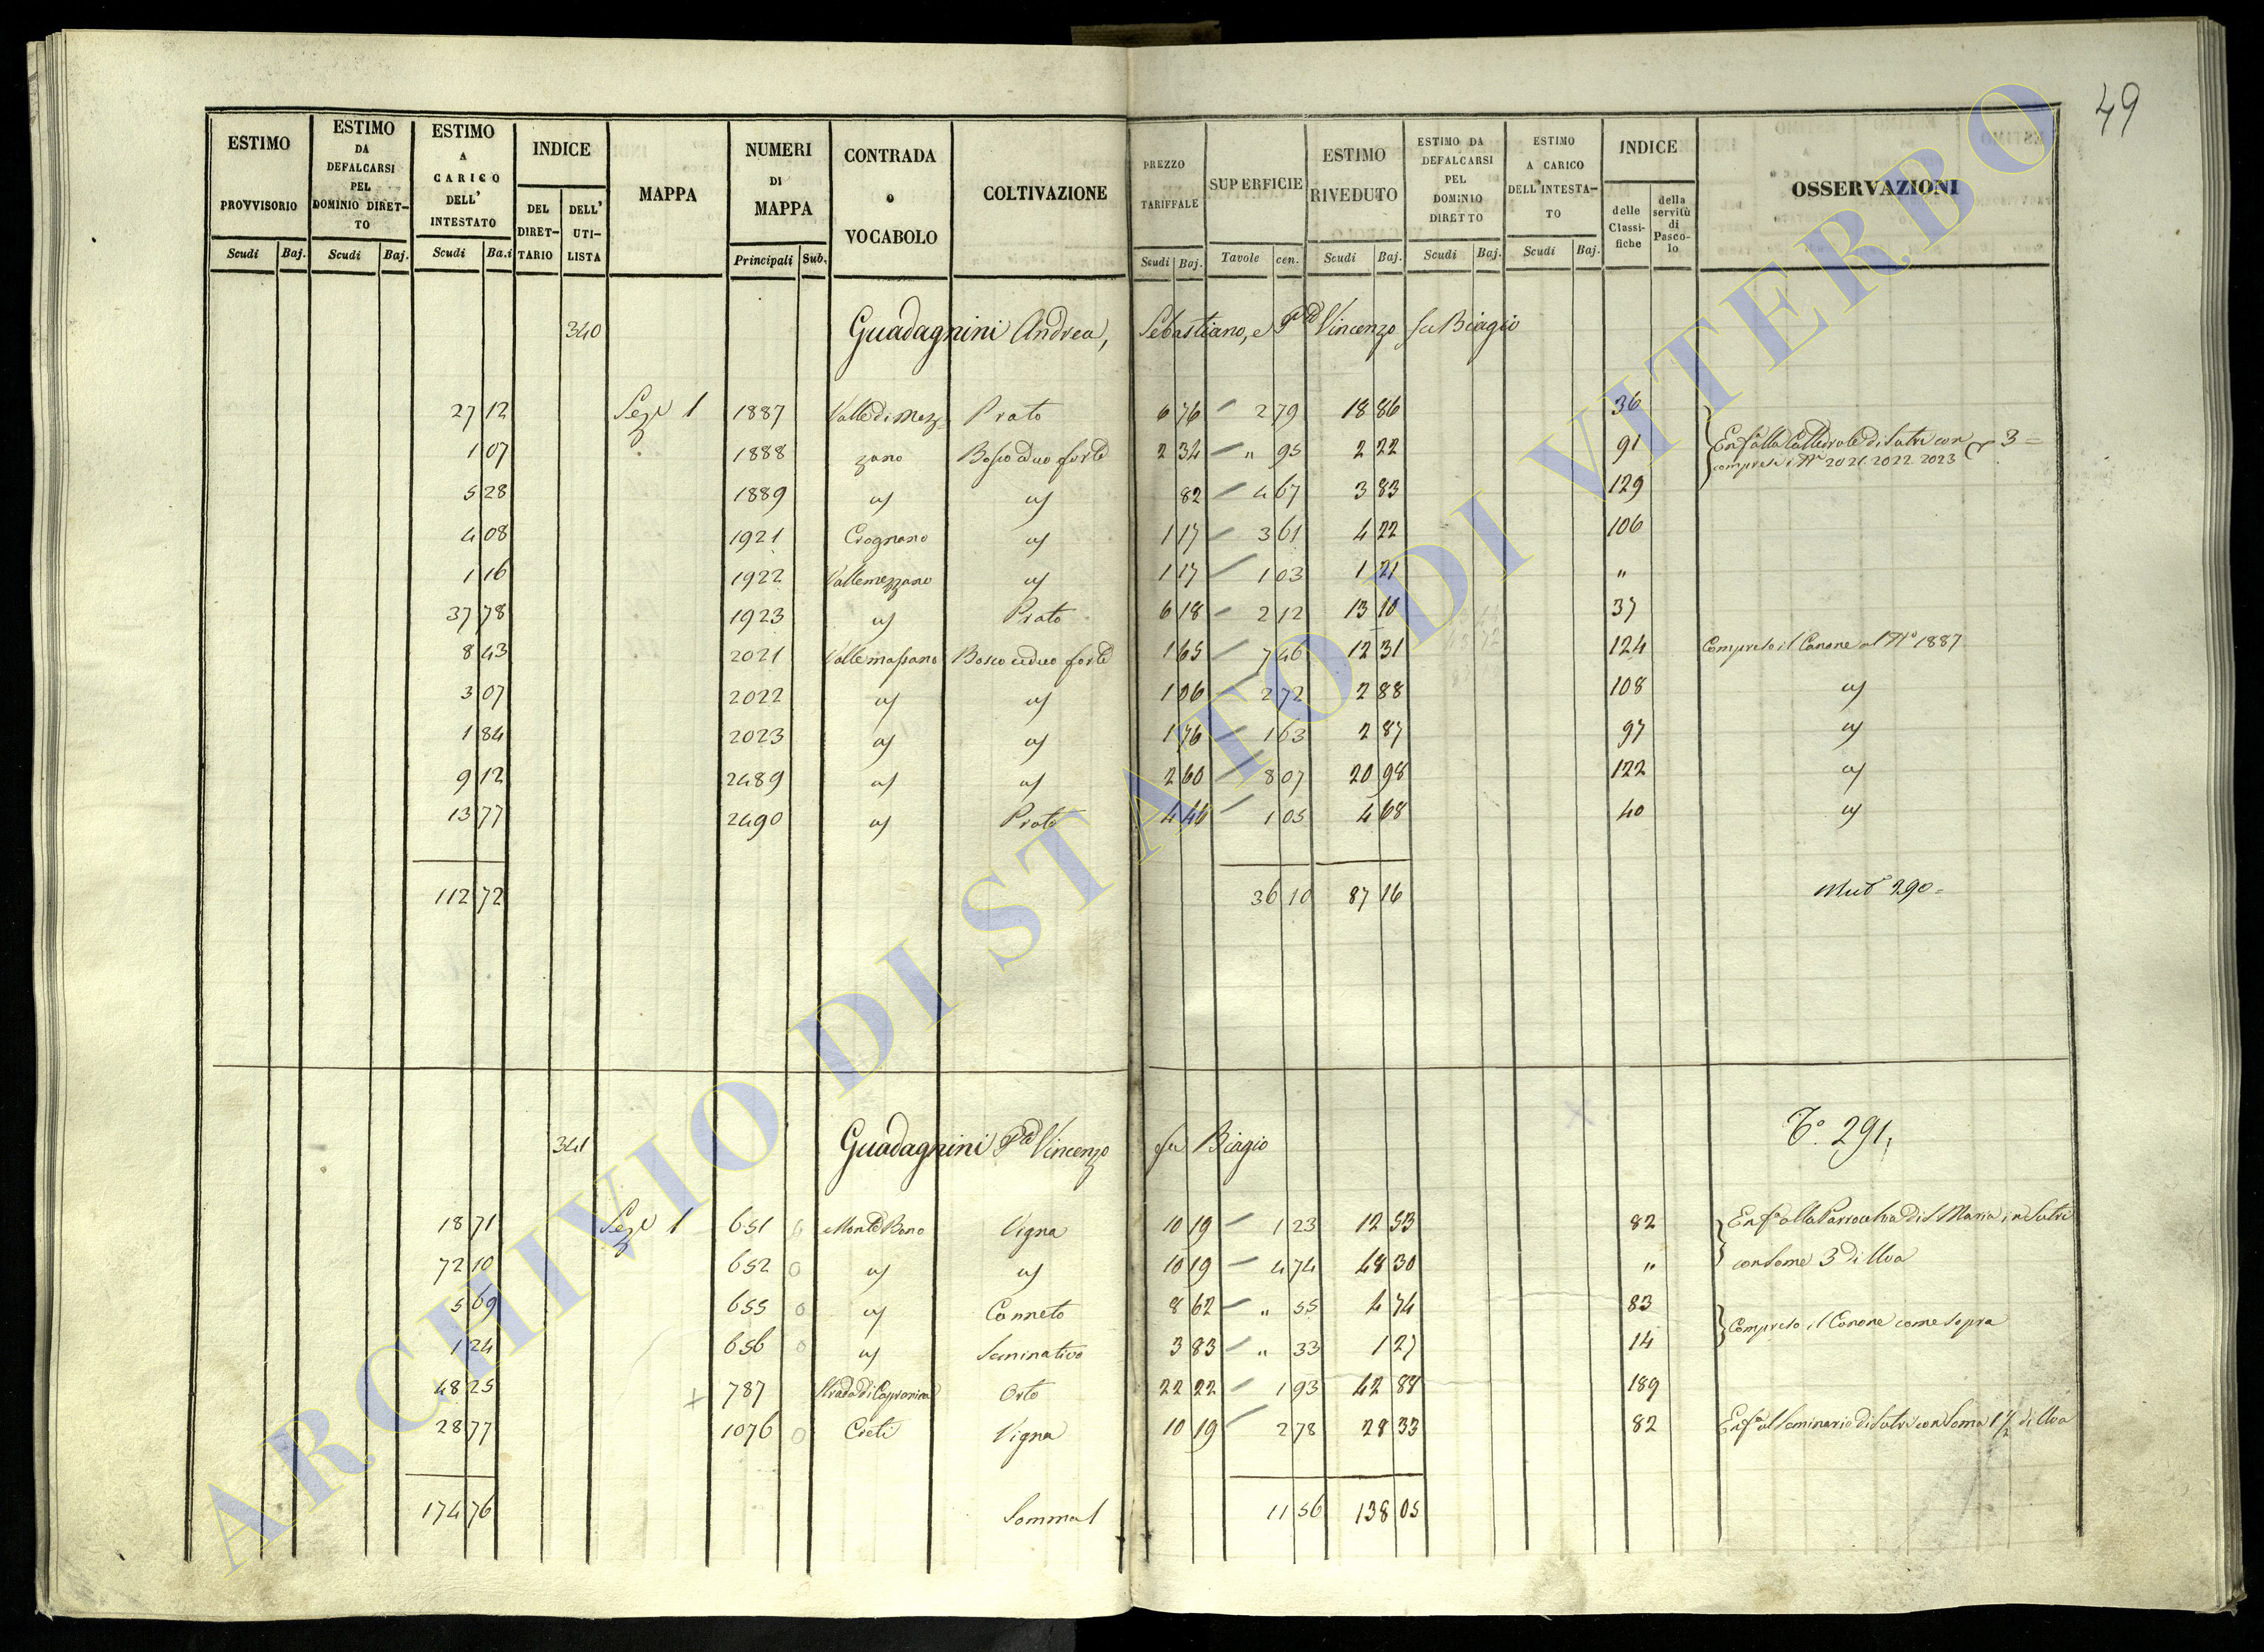 49
ESTIMO PROVVISORIO Scudi Baj.
ESTIMO DA DEFALCARSI PEL DOMINIO DIRET-TO Scudi Baj.
ESTIMO A CARICO DELL' INTESTATO Scudi Ba.i
INDICE DEL DIRET-TARIO DELL' UTI-LISTA
MAPPA
NUMERI DI MAPPA Principali Sub.
CONTRADA o VOCABOLO
COLTIVAZIONE
PREZZO TARIFFALE Scudi Baj.
SUPERFICIE Tavole cen.
ESTIMO RIVEDUTO Scudi Baj.
ESTIMO DA DEFALCARSI PEL DOMINIO DIRETTO Scudi Baj.
ESTIMO A CARICO DELL'INTESTA-TO Scudi Baj.
INDICE delle Classi-fiche della servitù di Pasco-lo
OSSERVAZIONI
340 Guadagnini Andrea, Sebastiano, e Vincenzo fu Biagio
27 12 Sez. 1 1887 Valle di Mez= Prato 6 76 2 79 18 86 36
1 07 1888 zano Bosco ceduo forte 2 34 " 95 2 22 91 Enf. alla Cattedrale di Sutri con 3 =
compresi i N. 2021. 2022. 2023
5 28 1889 82 4 67 3 83 129
4 08 1921 Crognano 1 17 3 61 4 22 106
1 16 1922 Vallemezzano 1 17 1 03 1 21 "
37 78 1923 Prato 6 18 2 12 13 10 37
8 43 2021 Vallemassano Bosco ceduo forte 1 65 7 46 12 31 124 Compreso il Canone al N.o 1887
3 07 2022 1 06 2 72 2 88 108
1 84 2023 1 76 1 63 2 87 97
9 12 2489 2 60 8 07 20 98 122
13 77 2490 Prato 4 46 1 05 4 68 40
112 72 36 10 87 16 Mut 290=
341 Guadagnini Vincenzo fu Biagio 291,
18 71 Sez. 1 651 Monte Bono Vigna 10 19 1 23 12 53 82 Enf. alla Parrocchia di S. Maria in Sutri
72 10 652 0 10 19 4 74 48 30 " con Some 3 di Uva
5 69 655 0 Canneto 8 62 " 55 4 74 83
Compreso il Canone come sopra
1 24 656 0 Seminativo 3 83 " 33 1 27 14
48 25 787 Strada di Capronica Orto 22 22 1 93 42 88 189
28 77 1076 0 Creti Vigna 10 19 2 78 28 33 82 Enf. al Seminario di Sutri con Soma 1 1/2 di Uva
174 76 Somma 11 56 138 05
ARCHIVIO DI STATO DI VITERBO